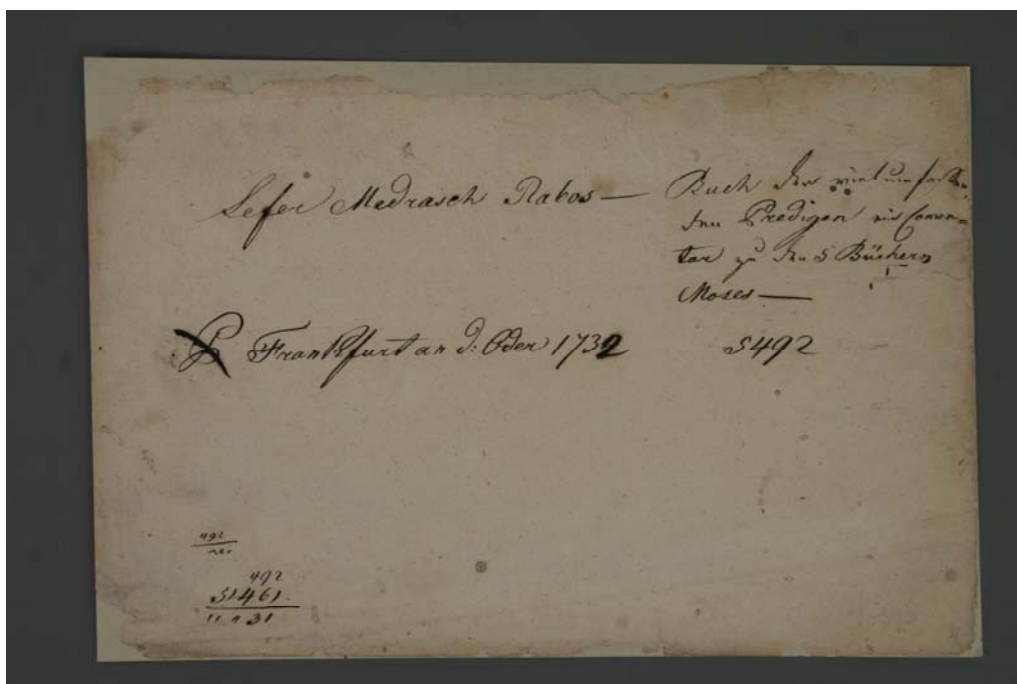 Sefer Medrasch Rabos — Buch der vielumfassen-
den Predigen ein Comen=
tar zu den 5 Büchern
Moses —
Frankfurt an d: Oder 1732 5492
492
492
51461.
31